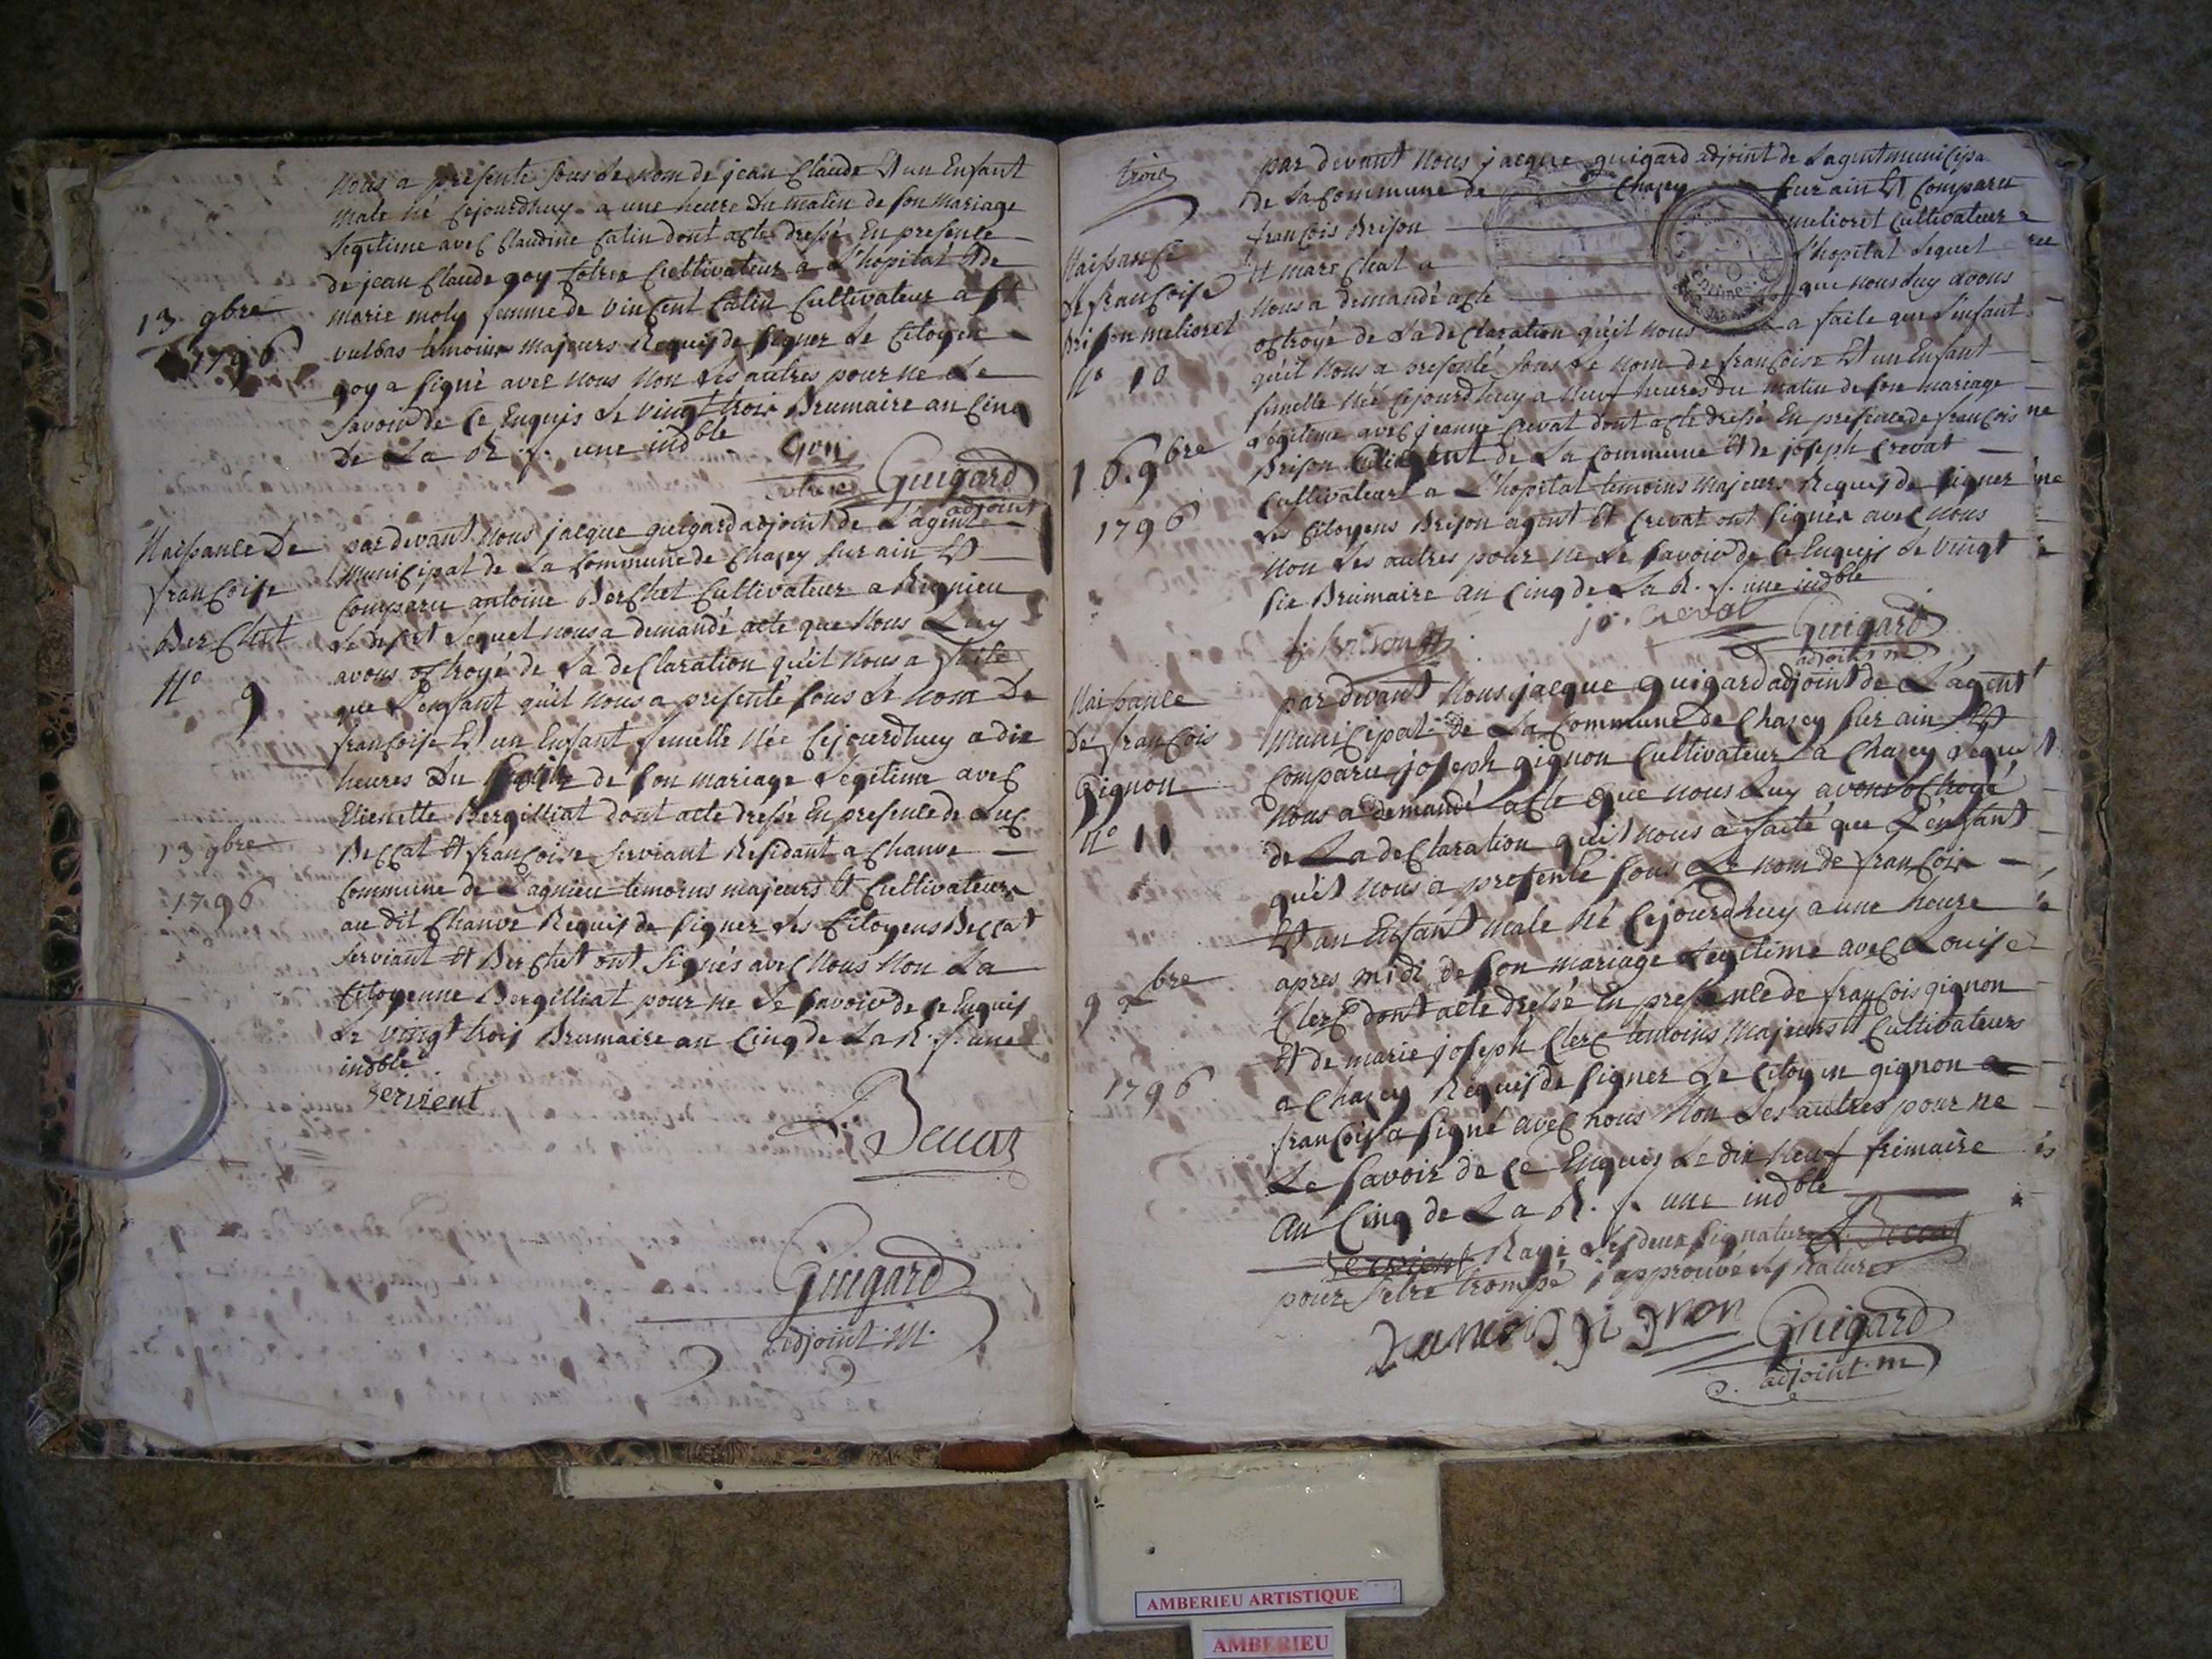 nous a presenté sous le nom de jean Claude Est un Enfant
male né Cejourdhuy a une heure du matin de son mariage
legitime avec Claudine Catin dont acte dressé En presence
de jean Claude goy Cultivateur a L'hopital Et de
marie moly femme de vincent Catin Cultivateur a St
vulbas temoins majeurs Requis de signer Le Citoyen
goy a signé avec nous non Les autres pour ne Le
savoir de Ce Enquis Le vingt trois Brumaire an Cinq
de La R. f. une indble
13 9bre
1796
Goy
Guigard
adjoint
Naissance De
françoise
Berchet
No 9
13 9bre
1796
par devant nous jacque guigard adjoint de L'agent
municipal de La Commune de Chasey sur ain Est
Comparu antoine Berchet Cultivateur a Rignieu
Le desert Lequel nous a demandé acte que nous Luy
avons octroyé de La declaration qu'il nous a faite
que L'enfant qu'il nous a presenté sous Le nom De
françoise Est un Enfant femelle Née Cejourdhuy a dix
heures du de son mariage Legitime avec
Etienette Bergilliat dont acte dressé En presence de Luc
Beccat Et françoise serviant Residant a Chanve
Commune de Lagnieu temoins majeurs Et Cultivateurs
au dit Chanve Requis de signer Les Citoyens Beccat
serviant Et Berchet ont signés avec nous non La
Citoyenne Bergilliat pour ne Le savoir de Ce Enquis
Le vingt trois Brumaire an Cinq de La R. f. une
indble
servient
Guigard
adjoint m.
trois
Naissance
de françoise
brison melioret
No 10
16. 9bre
1796
par devant nous jacque guigard adjoint de Lagent municipa
de La Commune de Chasey sur ain Est Comparu
françois Brison melioret Cultivateur
Et marechal a L'hopital Lequel
nous a demandé acte que nous Luy avons
octroyé de La declaration qu'il nous a faite que L'enfant
qu'il nous a presenté sous Le nom de françoise Est un Enfant
femelle Née Cejourdhuy a neuf heures du matin de son mariage
Legitime avec jeanne Crevat dont acte dressé En presence de françois
Brison agent de La Commune Et de joseph Crevat
Cultivateur a L'hopital temoins majeurs Requis de signer
Les Citoyens Brison agent Et Crevat ont signés avec nous
non Les autres pour ne Le savoir de Ce Enquis Le vingt
six Brumaire an Cinq de La R. f. une indble
f. brison
jo. Crevat
Guigard
adjoint m.
Naissance
De françois
Gignon
No 11
9 xbre
1796
par devant nous jacque guigard adjoint de L'agent
municipal de La Commune de Chasey sur ain Est
Comparu joseph gignon Cultivateur a Chasey Lequel
nous a demandé acte que nous Luy avons octroyé
de La declaration qu'il nous a faite que L'enfant
qu'il nous a presenté sous Le nom de françois
Est un Enfant male né Cejourdhuy a une heure
apres midi de son mariage Legitime avec Louise
Clerc dont acte dressé En presence de françois gignon
Et de marie joseph Clerc temoins majeurs Et Cultivateurs
a Chasey Requis de signer Le Citoyen gignon
françois a signé avec nous non Les autres pour ne
Le savoir de Ce Enquis Le dix neuf frimaire
an Cinq de La R. f. une indble
servient Rayé Les deux signatures L. Beccat
pour s'etre trompé japprouve
francois gignon
Guigard
adjoint m
AMBERIEU ARTISTIQUE
AMBERIEU